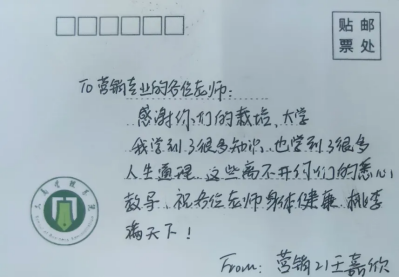 贴邮
票处
To 营销专业的各位老师:
感谢你们的栽培,大学
我学到了很多知识,也学到了很多
人生道理,这些离不开你们的悉心
教导、祝各位老师身体健康、桃李
满天下!
From: 营销21王嘉欣